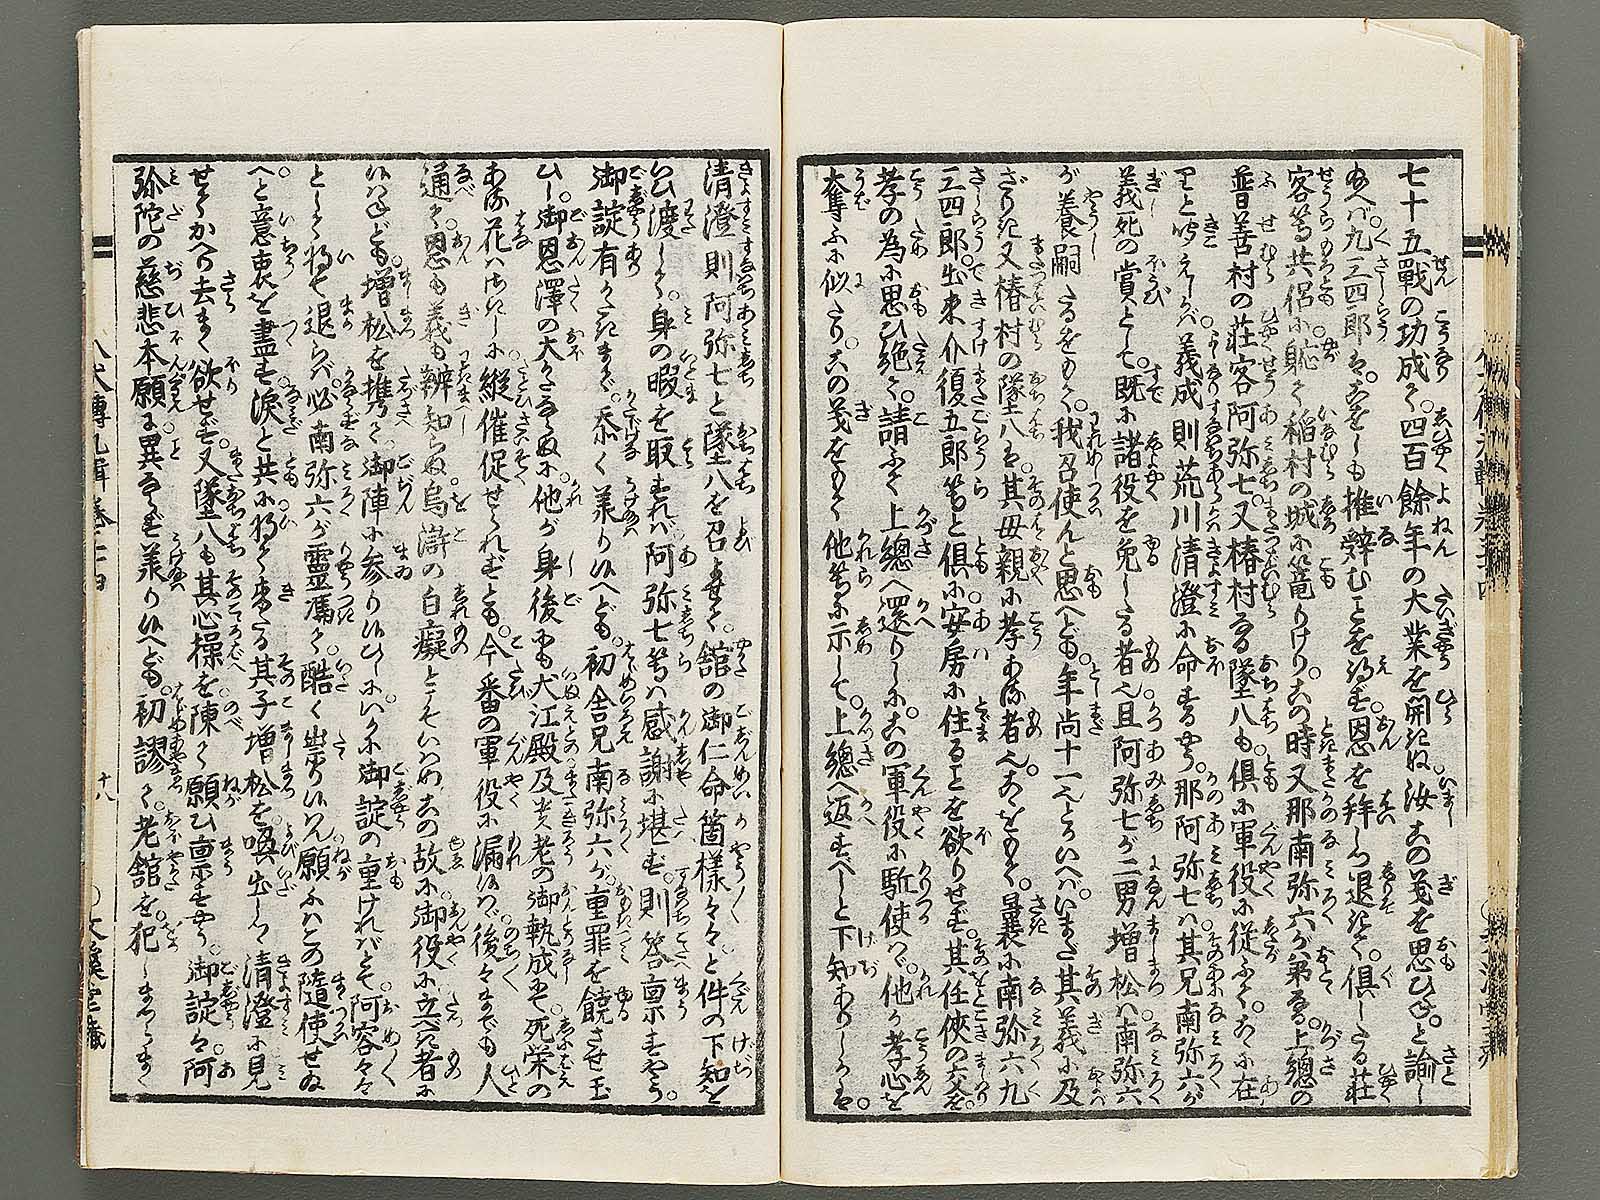 七十五戰の功成て四百餘年の大業を開きね汝この義を思ひねと諭し
給へバ九三四郎ハこをしも推辞むことを得ず恩を拜しつ退きて倶したる莊
客等共侶に躬て稲村の城に篭りけりこの時又那南弥六が弟なる上總の
普善村の莊客阿弥七又椿村なる墜八も倶に軍役に從ふてこゝに在
りと聞えしかバ義成則荒川清澄に命するやう那阿弥七ハ其兄南弥六が
義死の賞として既に諸役を免したる者也且阿弥七が二男増松ハ南弥六
が養嗣たるをもて我召使んと思へども年尚十一也とかいへバいまだ其義に及
ざりき又椿村の墜八ハ其母親に孝ある者也こゝをもて曩に南弥六九
三四郎出来介復五郎等と倶に安房に住ることを欲りせず其任俠の交を
孝の為に思ひ絶て請ふて上總へ還りしにこの軍役に駈使ハヾ他が孝心を
奪ふに似たりこの義をもて他等に示して上總へ返すべしと下知ありしかバ
清澄則阿弥七と墜八を召よせて舘の御仁命箇様々々と件の下知を
いひ渡しつ身の暇を取すれバ阿弥七等ハ感謝に堪ず則答稟すやう
御諚有がたきまで忝く承り候へども初舎兄南弥六が重罪を饒させ玉
ひし御恩澤の大かたならぬに他が身後にも犬江殿及大老の御執成にて死栄の
ある花ハさきしに縦催促せられずとも今番の軍役に漏候ハヾ後々までも人
通て恩も義も辨知らぬ烏滸の白癡とそいはめこの故に御役に立べき者に
候ハねども増松を携て御陣に参り候ひしにいかに御諚の重けれバとて阿容々々
として将て退らバ必南弥六が靈憑て酷く祟り候ハん願ふハこの隨使せ給
へと意衷を盡す涙と共に将て来たる其子増松を喚出しつ清澄に見
せてかへり去まく欲せず又墜八も其心操を陳て願ひ稟すやう御諚ハ阿
弥陀の慈悲本願に異ならず承り候へども初謬て老舘を犯しまつらまく
八犬傳九輯巻三十四
十八
文溪堂藏